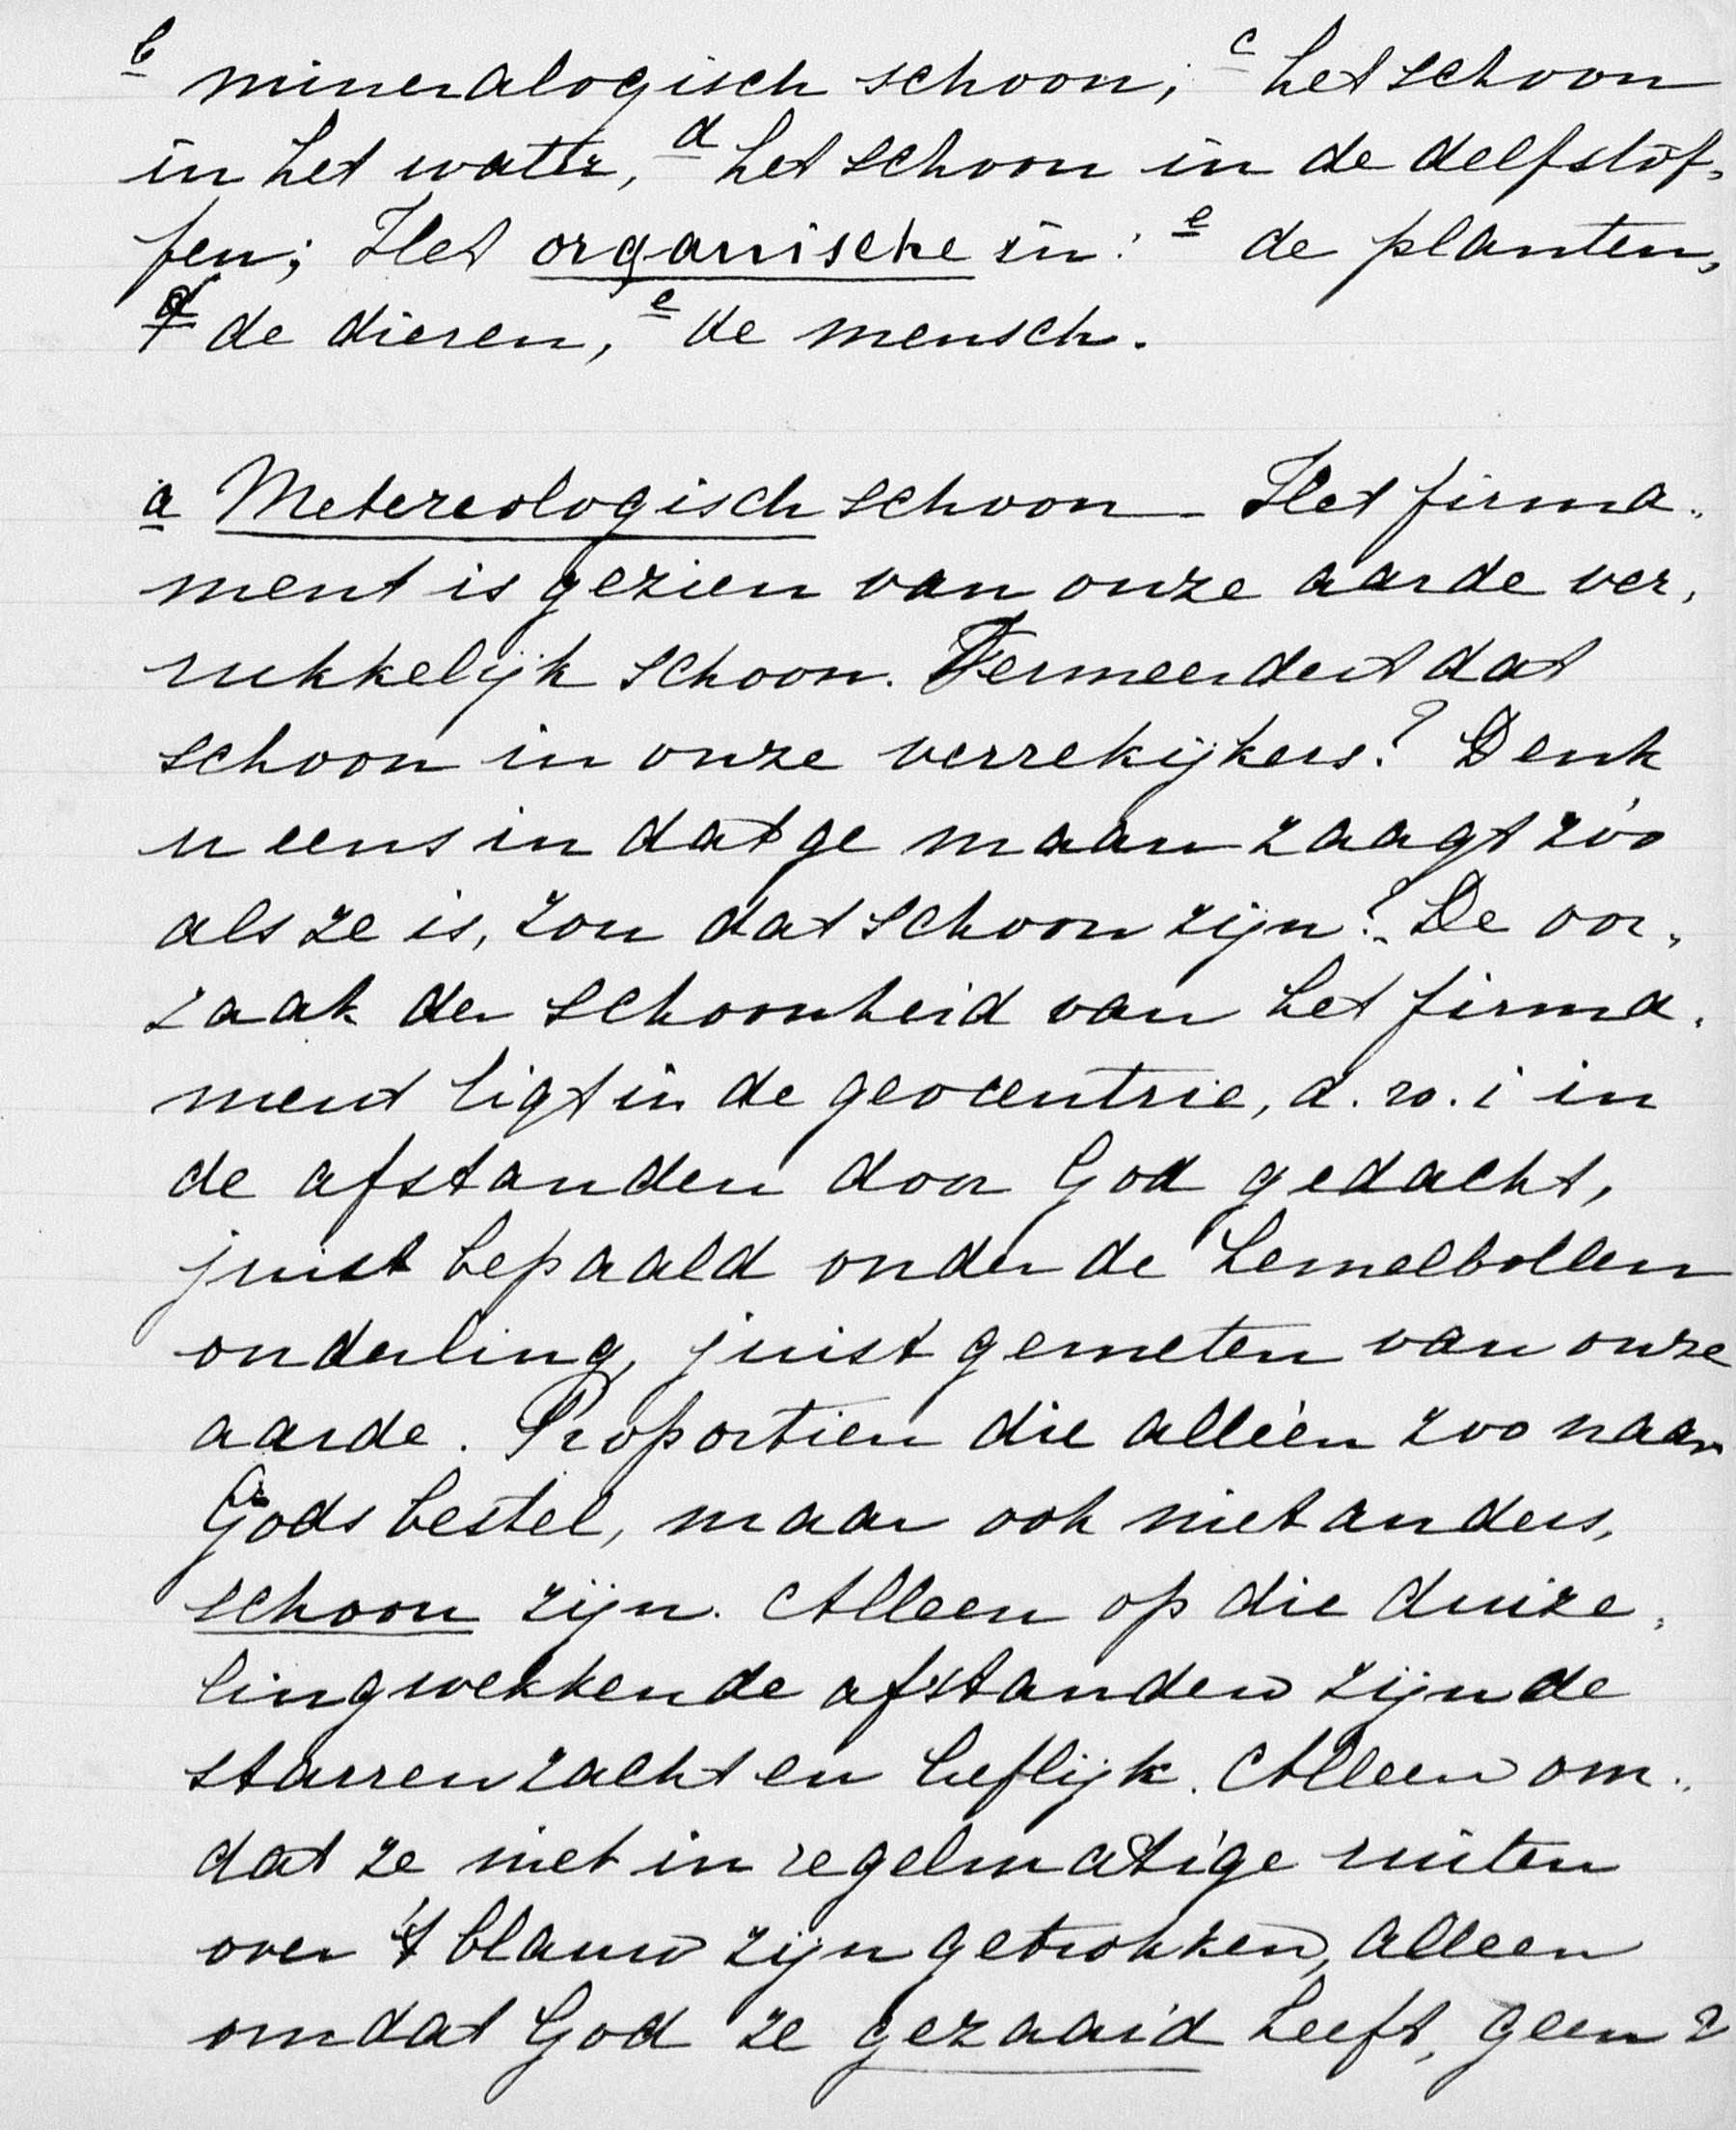 b mineralogisch schoon; c het schoon
in het water, d het schoon in de delfstof-
fen; Het organische in: e de planten,
d de dieren, e de mensch.
a Metereologisch schoon - Het firma-
ment is gezien van onze aarde ver-
rukkelijk schoon. Vermeerdert dat
schoon in onze verrekijkers? Denk
u eens in dat ge maan zaagt zóo
als ze is, zou dat schoon zijn? De oor-
zaak der schoonheid van het firma-
ment ligt in de geocentrie, d.w.i in
de afstanden door God gedacht,
juist bepaald onder de hemelbollen
onderling, juist gemeten van onze
aarde. Proportien die alléén zoo naar
Gods bestel, maar ook niet anders,
schoon zijn. Alleen op die duize-
lingwekkende afstanden zijn de
starren zacht en lieflijk. Alleen om-
dat ze niet in regelmatige ruiten
over 't blauw zijn getrokken, alleen
omdat God ze gezaaid heeft, geen 2